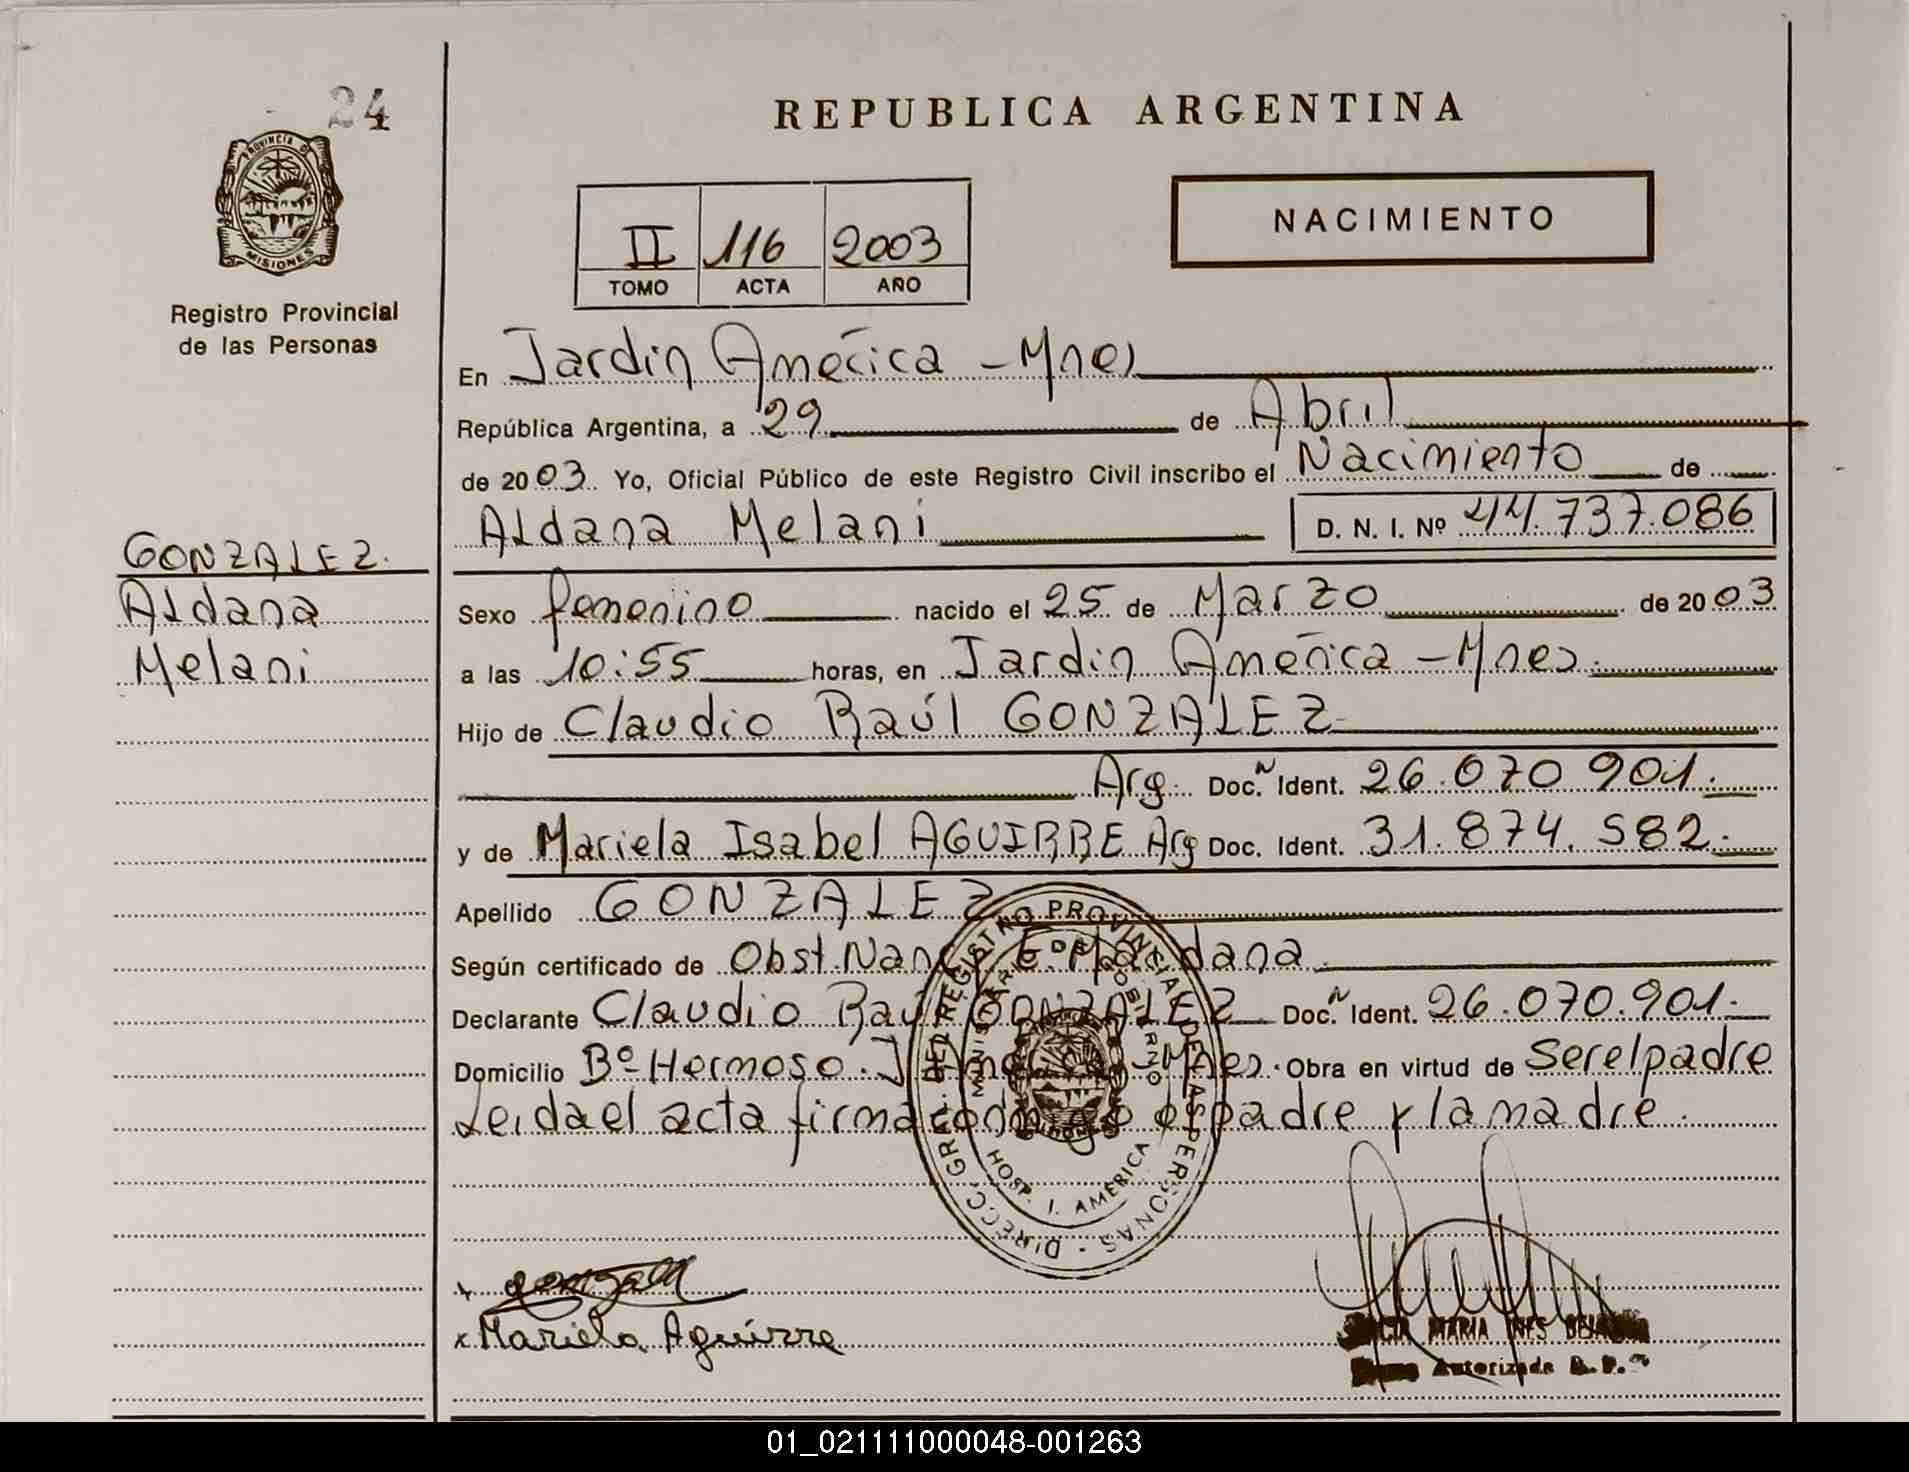 24
PROVINCIA D
MISIONES
Registro Provincial
de las Personas
REPUBLICA ARGENTINA
NACIMIENTO
II 116 2003
TOMO ACTA AÑO
En Jardin América - Mnes
República Argentina, a 29 de Abril
de 2003 Yo, Oficial Público de este Registro Civil inscribo el Nacimiento de
Aldana Melani D. N. I. Nº 44.737.086
GONZALEZ.
Aldana
Melani
Sexo femenino nacido el 25 de Marzo de 2003
a las 10:55 horas, en Jardin América - Mnes.
Hijo de Claudio Raúl GONZALEZ
Arg. Doc. Ident. 26.070.901.
y de Mariela Isabel AGUIRRE Arg Doc. Ident. 31.874.582.
Apellido GONZALEZ
Según certificado de Obst. Nancy E. Maidana
Declarante Claudio Raúl GONZALEZ Doc. Ident. 26.070.901.
Domicilio Bº Hermoso. J. América - Mnes. Obra en virtud de Ser el padre
Leida el acta firma
padre y la madre.
DIRECC. GRAL. DEL REGISTRO PROVINCIAL DE LAS PERSONAS
MINISTERIO DE GOBIERNO
HOSP. J. AMERICA
x
x Mariela Aguirre
MARIA INES
Autorizada R. P.
01_021111000048-001263